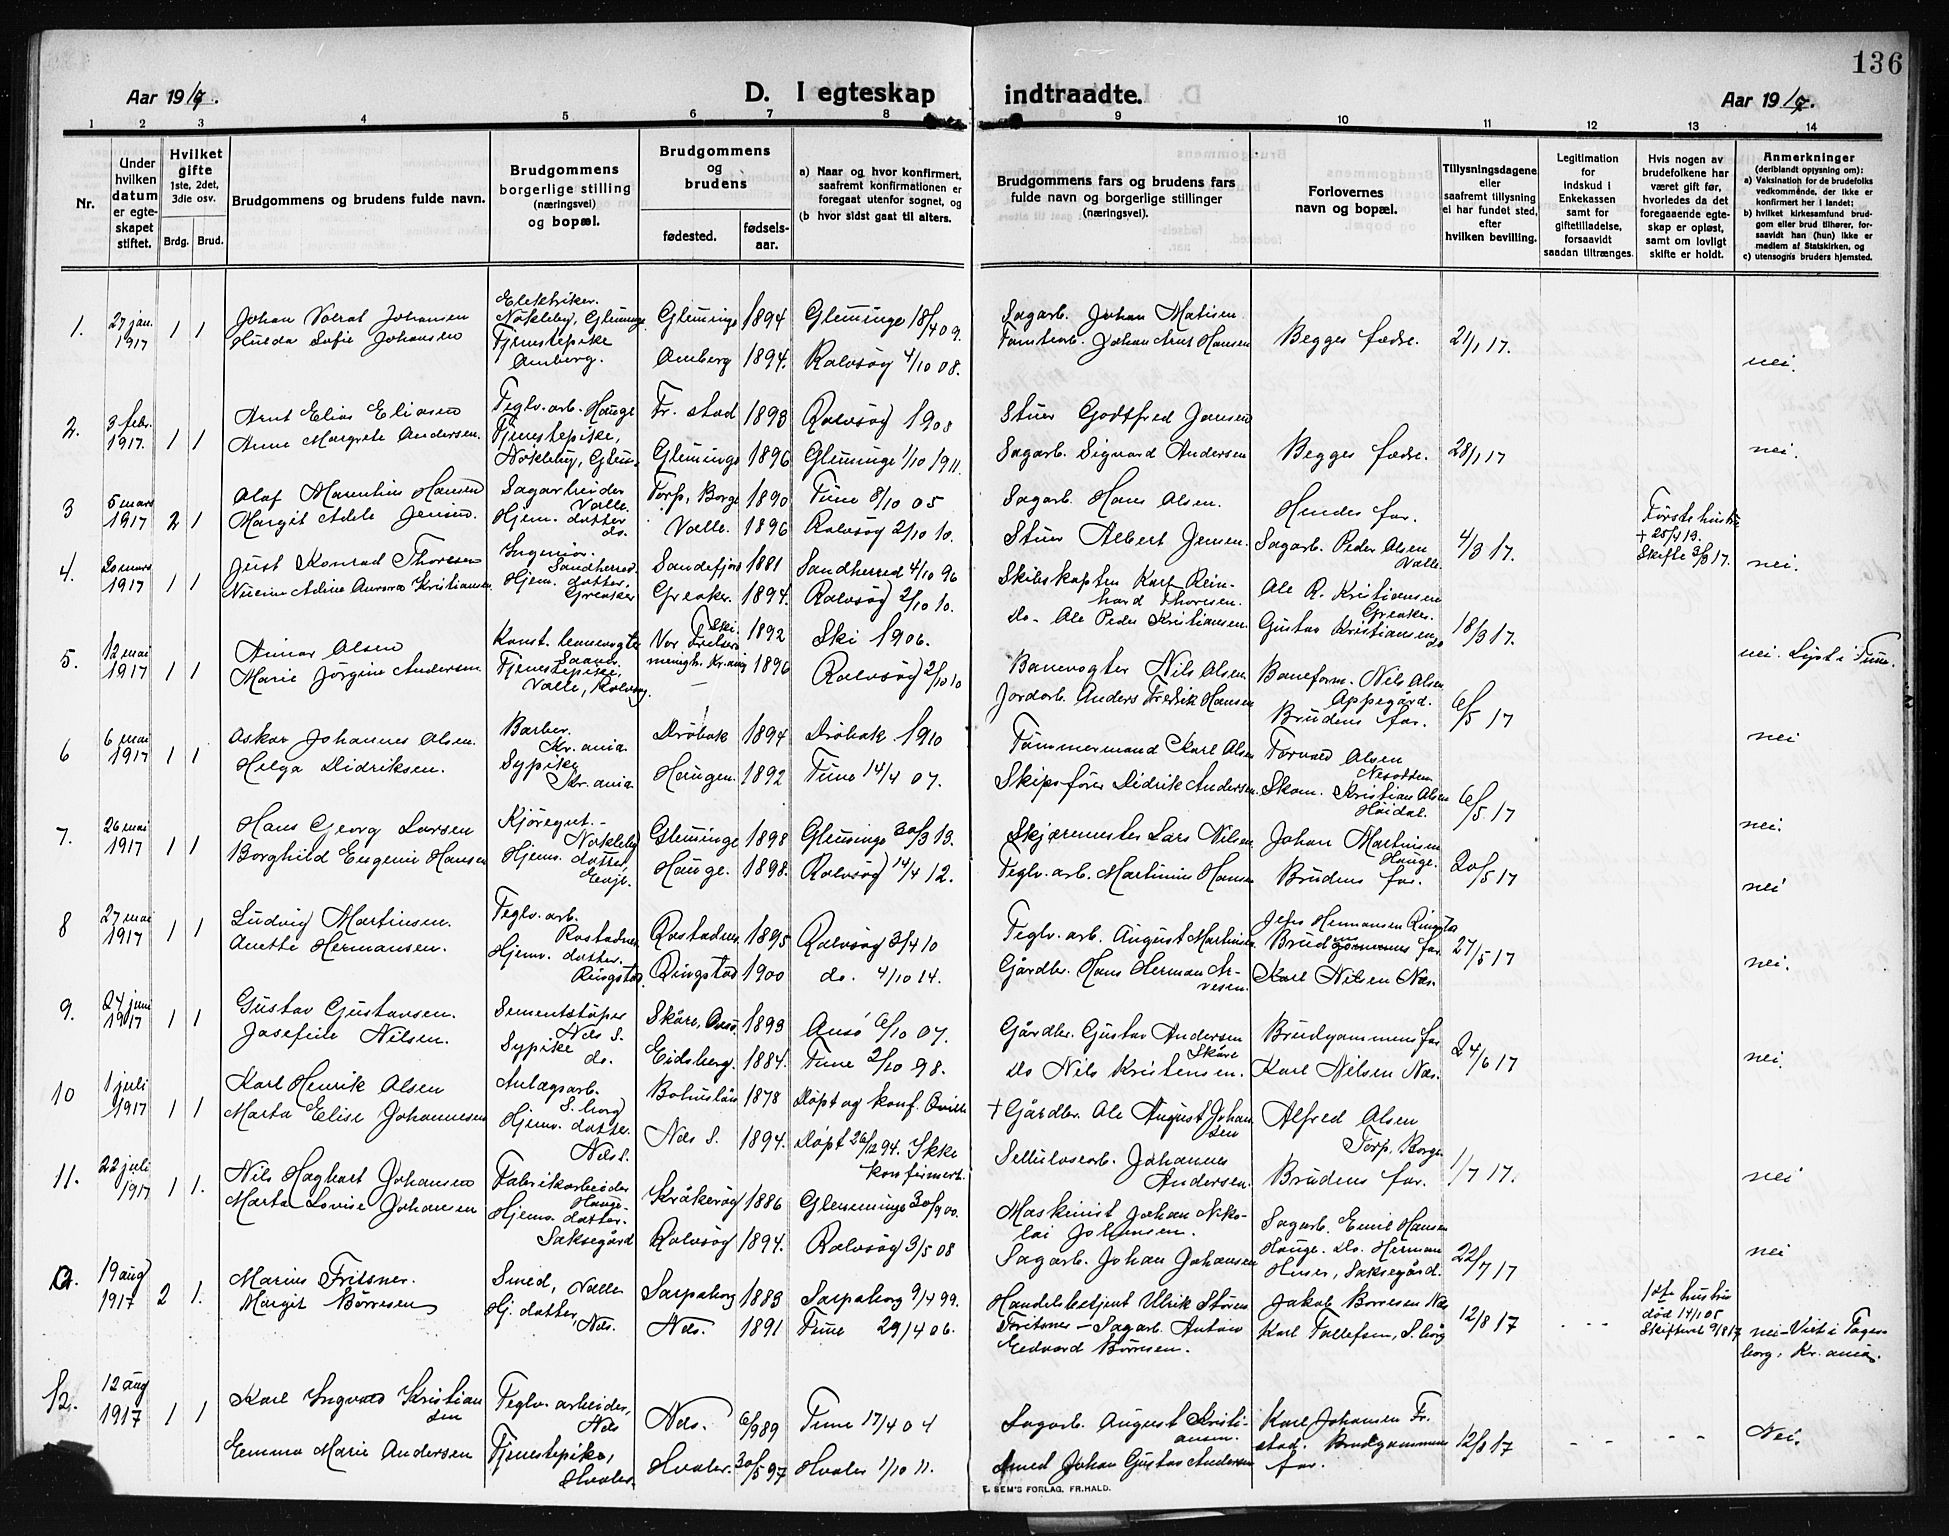 136
Aar 1917.
D. I egteskap indtraadte.
Aar 1917.
1 2 3 4 5 6 7 8 9 10 11 12 13 14
Nr.
Under hvilken datum er egte-skapet stiftet.
Hvilket gifte 1ste, 2det, 3die osv.
Brdg. Brud.
Brudgommens og brudens fulde navn.
Brudgommens borgerlige stilling (næringsvei) og bopæl.
Brudgommens og brudens
fødested.
fødsels-aar.
a) Naar og hvor konfirmert, saafremt konfirmationen er foregaat utenfor sognet, og
(b hvor sidst gaat til alters.
Brudgommens fars og brudens fars fulde navn og borgerlige stillinger (næringsvei).
Forlovernes navn og bopæl.
Tillysningsdagene eller saafremt tillysning ei har fundet sted, efter hvilken bevilling.
Legitimation for indskud i Enkekassen samt for giftetilladelse, forsaavidt saadan tiltrænges.
Hvis nogen av brudefolkene har været gift før, hvorledes da det foregaaende egte-skap er opløst, samt om lovligt skifte er holdt.
Anmerkninger (deriblandt oplysning om):
a) Vaksination for de brudefolks vedkommende, der ikke er konfirmert her i landet;
b) hvilket kirkesamfund brud-gom eller brud tilhører, for-saavidt han (hun) ikke er medlem af Statskirken, og
c) utensogns bruders hjemsted.
1. 27 jan. 1917 1 1 Johan Volrat Johansen Elektriker. Nøkleby, Glemminge Glemminge 1894 Glemminge 18/4 09. Sagarb. Johan Matisen Begges fædre. 21/1 17.
Hulda Sofie Johansen Tjenestepike Amberg. Amberg 1894. Rolvsøy 4/10 08. Tomtearb. Johan Arnt Hansen nei.
2. 3 febr. 1917. 1 1 Arnt Elias Eliasen Teglv. arb. Hauge Fr. stad 1893 Rolvsøy 1908 Stuer Godtfred Jansen
Anne Margrete Andersen. Tjenestepike, Nøkleby, Glem. Glemminge 1896 Glemminge 1/10 1911. Sagarb. Sigvard Andersen Begges fædre. 28/1 17 nei.
3 5 mars 1917 2 1 Olaf Marentius Hansen Sagarbeider Valle. Torp, Borge 1890 Tune 8/10 05 Sagarb. Hans Olsen. Hendes far. Første hustru + 25/4 13. Skifte 3/3 17.
Margit Adele Jensen. Hjem. datter do. Valle. 1896 Rolvsøy 2/10 10. Stuer Albert Jensen. Sagarb. Peder Olsen Valle 4/3 17. nei.
4. 20 mars 1917 1 1 Just Konrad Thoresen Ingeniør. Sandherred. Sandefjord 1881 Sandherred 4/10 96 Skibskaptein Karl Rein-hard Thoresen. Ole R. Kristiansen Greaker.
Adine Aurora Kristiansen Hjem. datter. Greaker Greaker. 1894. Rolvsøy 2/10 10. Do. Ole Peder Kristiansen. Gustav Kristiansen do 18/3 17.
5. 12 mai 1917 1 1 Olsen Ski. 1892 Ski 1906. Banevogter Nils Olsen Baneform. Nils Olsen Oppegård. nei. Lyst i Tune.
Marie Jørgine Andersen Tjenestepike, Valle, Rolvsøy. Vor Frelsers menigh. Kr.ania 1896 Rolvsøy 2/10 10 Jordarb. Anders Fredrik Hansen Brudens far. 6/5 17
6 6 mai 1917 1 1 Oskar Johannes Olsen. Barber. Kr.ania Drøbak 1894 Drøbak 1910 Tømmermand Karl Olsen Torvald Olsen Nesodden nei
Helga Didriksen. Sypike Kr. ania Haugen. 1892 Tune 14/4 07. Skipsfører Didrik Andersen. Skom. Kristian Olsen Høidal. 6/5 17
7. 26 mai 1917 1 1 Hans Georg Larsen Kjøregut. Nøkleby Glemminge 1898 Glemminge 30/3 13. Skjæremester Lars Nilsen Johan Martinsen Hauge. nei.
Borghild Eugenie Hansen Hjem. datter, Evje. Hauge. 1898. Rolvsøy 14/4 12. Teglv. arb. Martinius Hansen Brudens far. 20/5 17 nei
8 27 mai 1917 1 1 Ludvig Martinsen. Teglv. arb. Rostadnes Rostadnes. 1895 Rolvsøy 3/4 10 Teglv. arb. August Martinsen Hermansen Ringstad Brudgommens far
Anette Hermansen. Hjem. datter. Ringstad. Ringstad 1900 do. 4/10 14. Gårdbr. Hans Herman Ar-vesen. Karl Nilsen Næs. 27/5 17 nei.
9. 24 juni 1917 1 1 Gustav Gustavsen. Sementstøper Nes S. Skåre, Onsø. 1893 Onsø 6/10 07. Gårdbr. Gustav Andersen Skåre Brudgommens far
Josefine Nilsen. Sypike do. Eidsberg. 1884. Tune 2/10 98. Do Nils Kristensen. Karl Nilsen Næs. 24/6 17 nei.
10 1 juli 1917 1 1 Karl Henrik Olsen Anlægsarb. S. borg Bohuslän 1878 Døpt og konf. + Gårdbr. Ole August Johan sen Alfred Olsen Torp, Borge
Marta Elise Johannesen Hjem. datter. Næs S. Næs S. 1894. Døpt 26/12 94. Ikke konfirmert. Sellulosearb. Johannes Andersen. Brudens far. 1/7 17. nei
11. 22 juli 1917 1 1. Nils Hagbart Johansen Fabrikarbeider Hauge. Kråkerøy 1886 Glemminge 30/9 00. Maskinist Johan Niko-lai Johansen. Sagarb. Emil Hansen Hauge.
Marta Lovise Johansen Hjem. datter. Saksegård Rolvsøy 1894. Rolvsøy 3/5 08 Sagarb. Johan Johansen Do. Herman Huser, Saksegård. 22/7 17 nei
12. 19 aug 1917 2 1. Marius Fritsner. Smed, Valle Sarpsborg 1883 Sarpsborg 9/4 99. Handelsbetjent Ulrik Fritsner Jakob Børresen Næs 1ste hustru død 14/1 05 Skiftet 9/8 17
Margit Børresen Hj. datter, Næs. Næs. 1891 Tune 29/4 06. Sagarb. Anton Edvard Børresen. Karl Tollefsen, S. borg 12/8 17 - - - nei - Viet i Fager-borg, Kr. ania.
12. 12 aug 1917 1 1 Karl Ingvald Kristian sen Teglv. arbeider, Næs Næs. 6/9 89 Tune 17/4 04 Sagarb. August Kristi-ansen. Karl Johansen Fr. stad. Brudgommens far. 12/8 17 - - - - - Nei.
Emma Marie Andersen Tjenestepike, Hvaler. Hvaler. 30/5 97 Hvaler 1/10 11. Smed Johan Gustav Andersen
E. SEM'S FORLAG, FR.HALD.